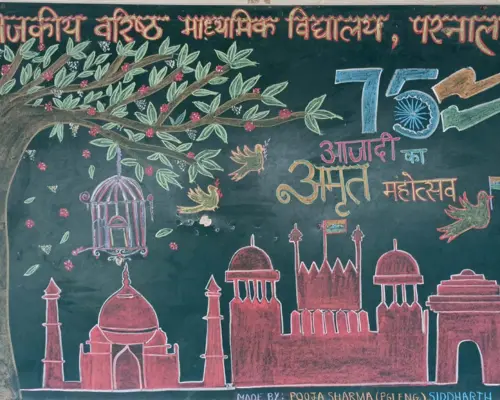 वरिष्ठ माध्यमिक विद्यालय,
75
आजादी का
अमृत महोत्सव
MADE BY: POOJA SHARMA (PGT ENG) SIDDHARTH